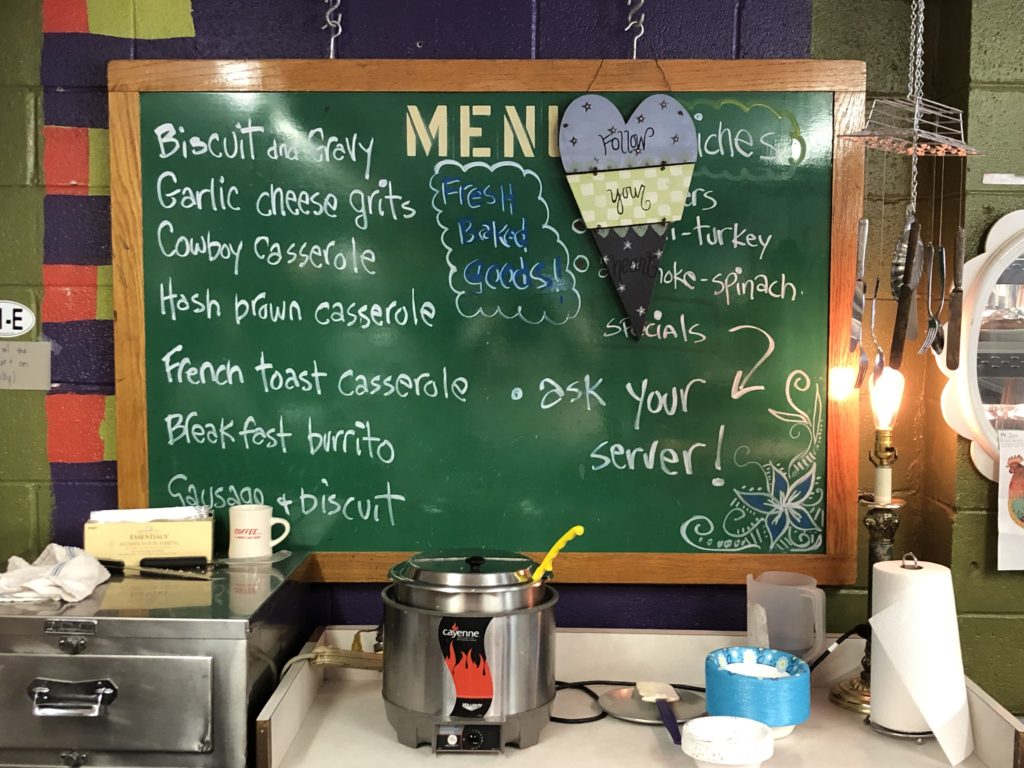 MENU
Biscuit and Gravy
Garlic cheese grits
Cowboy casserole
Hash brown casserole
French toast casserole
Breakfast burrito
Sausage & biscuit
Fresh
Baked
Goods!
Follow
your
heart
-turkey
-spinach
specials
• ask your
server!
COFFEE
ESSENTIALS
cayenne
-E